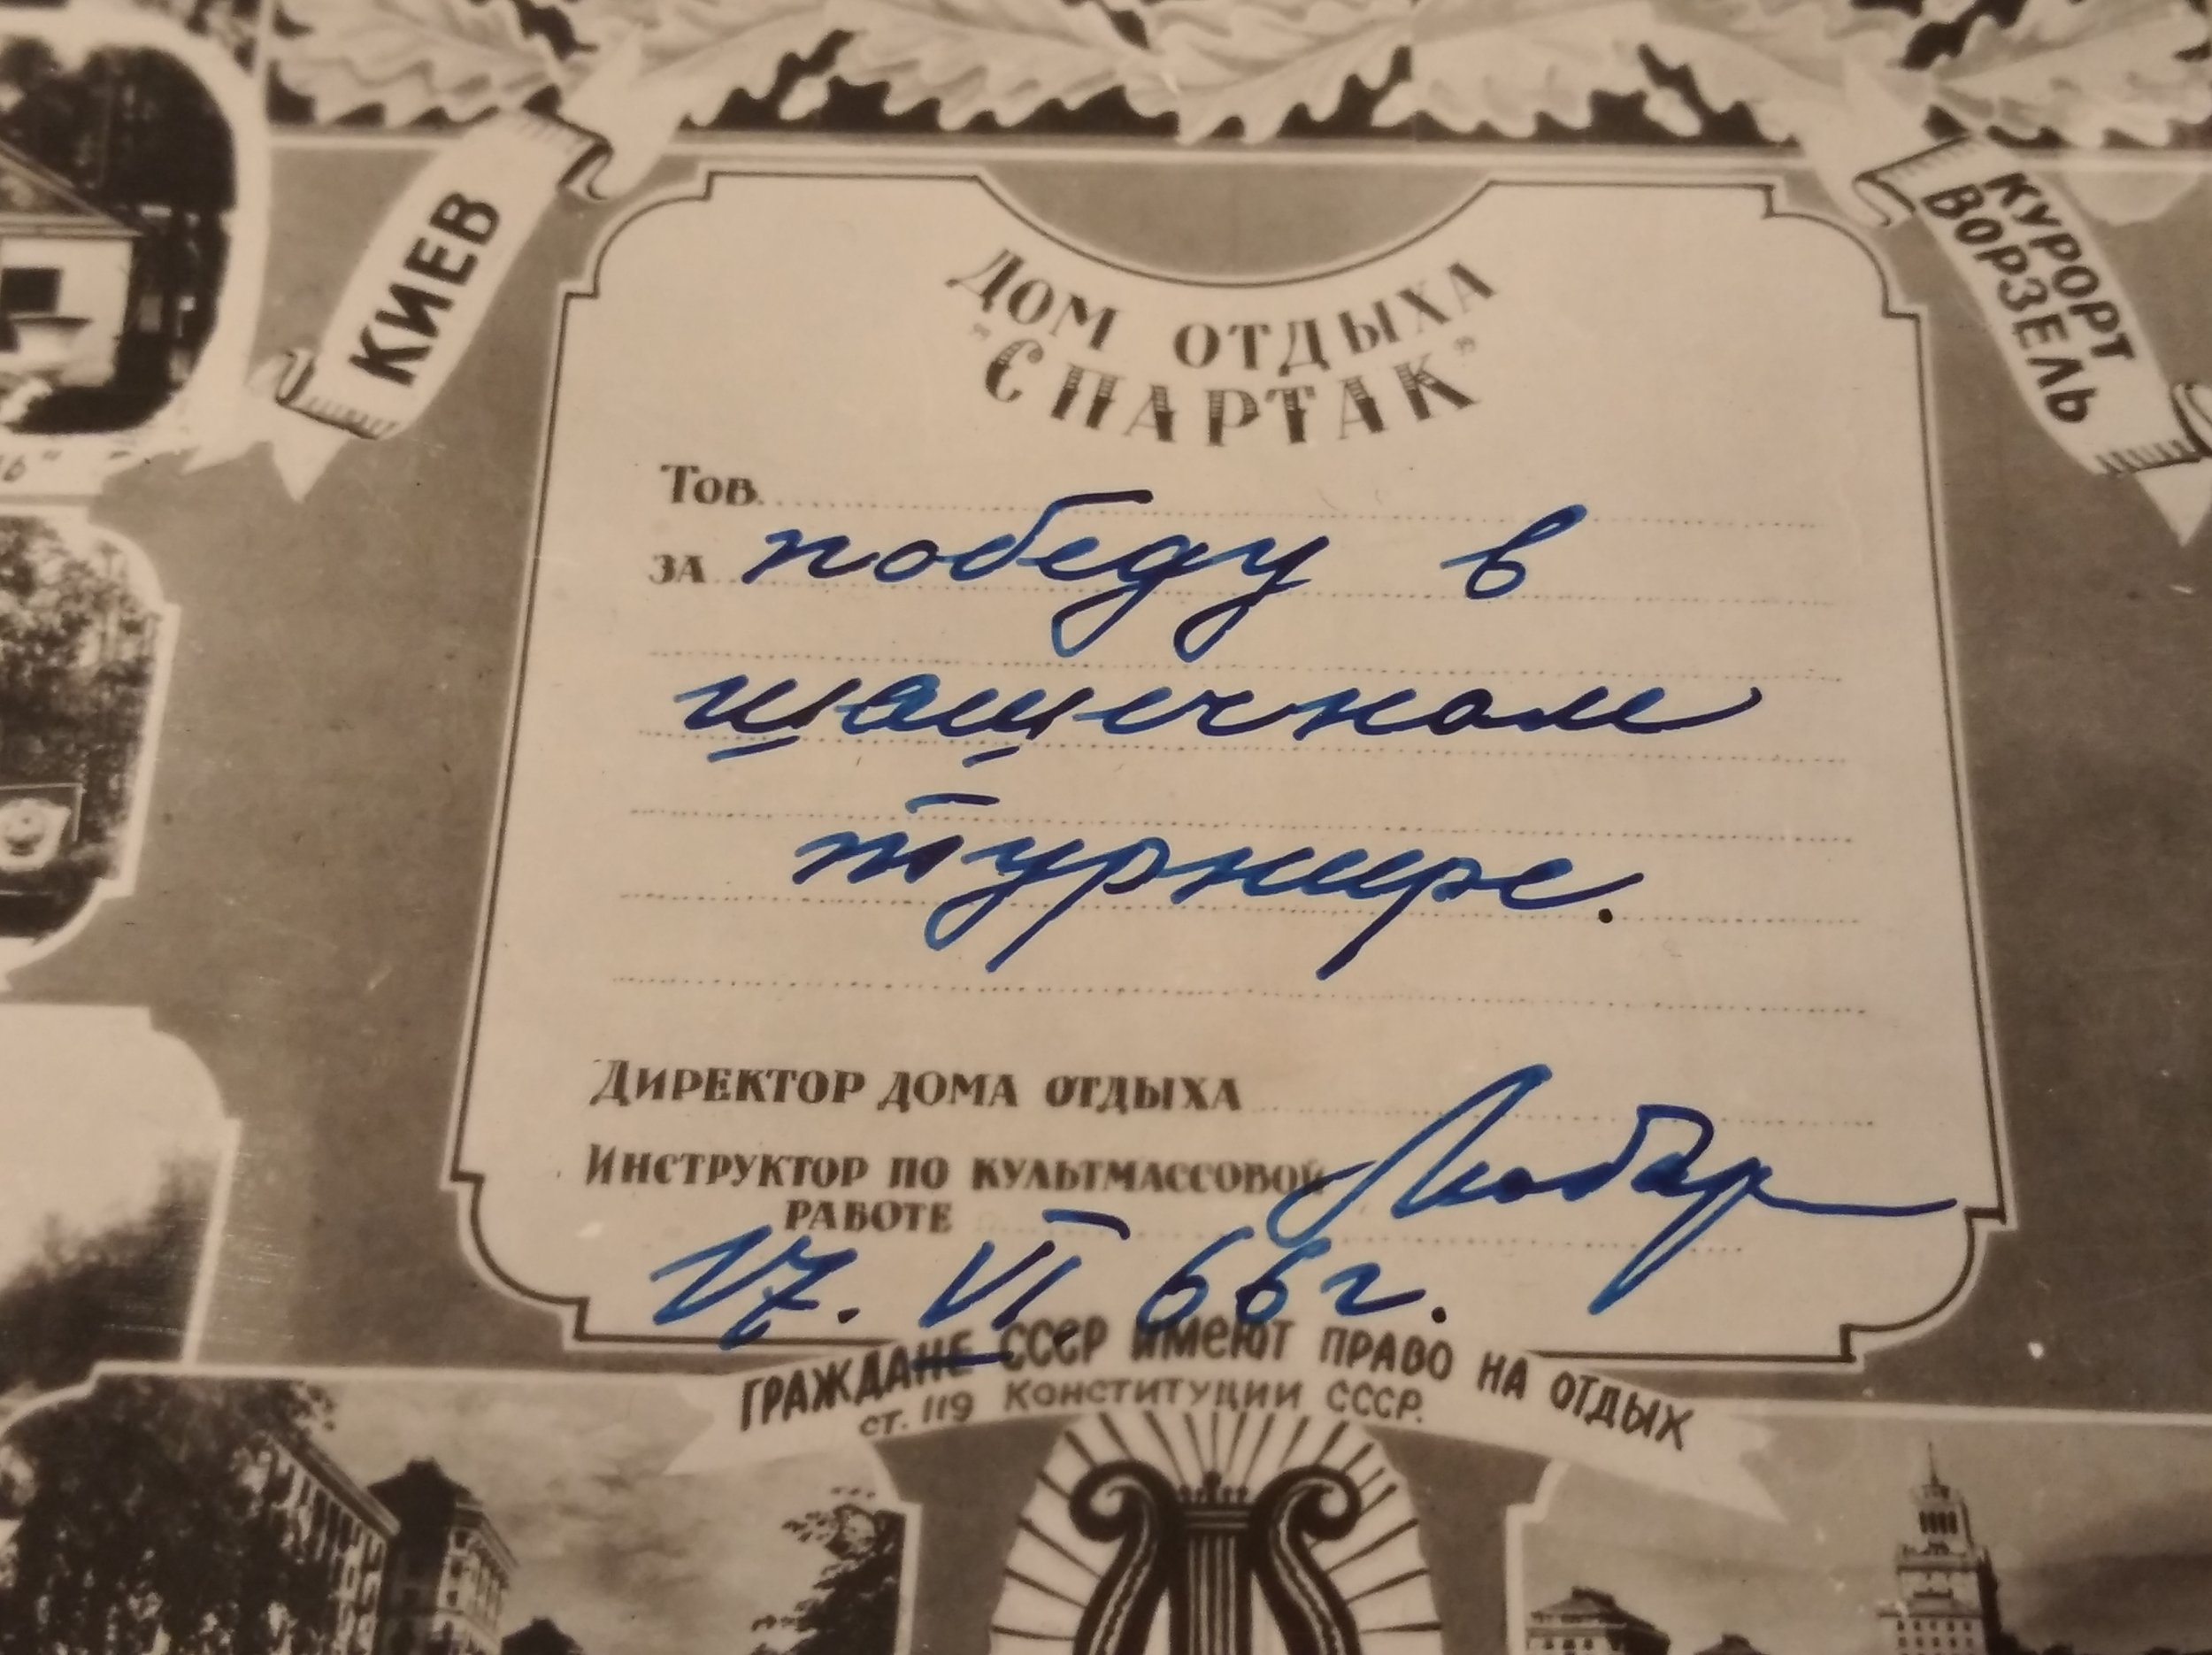 КИЕВ
КУРОРТ
ВОРЗЕЛЬ
ДОМ ОТДЫХА
"СПАРТАК"
Тов.
за победу в
шашечном
турнире.
Директор дома отдыха
Инструктор по культмассовой
работе
17. VI 66 г.
ГРАЖДАНЕ СССР ИМЕЮТ ПРАВО НА ОТДЫХ
ст. 119 Конституции СССР.